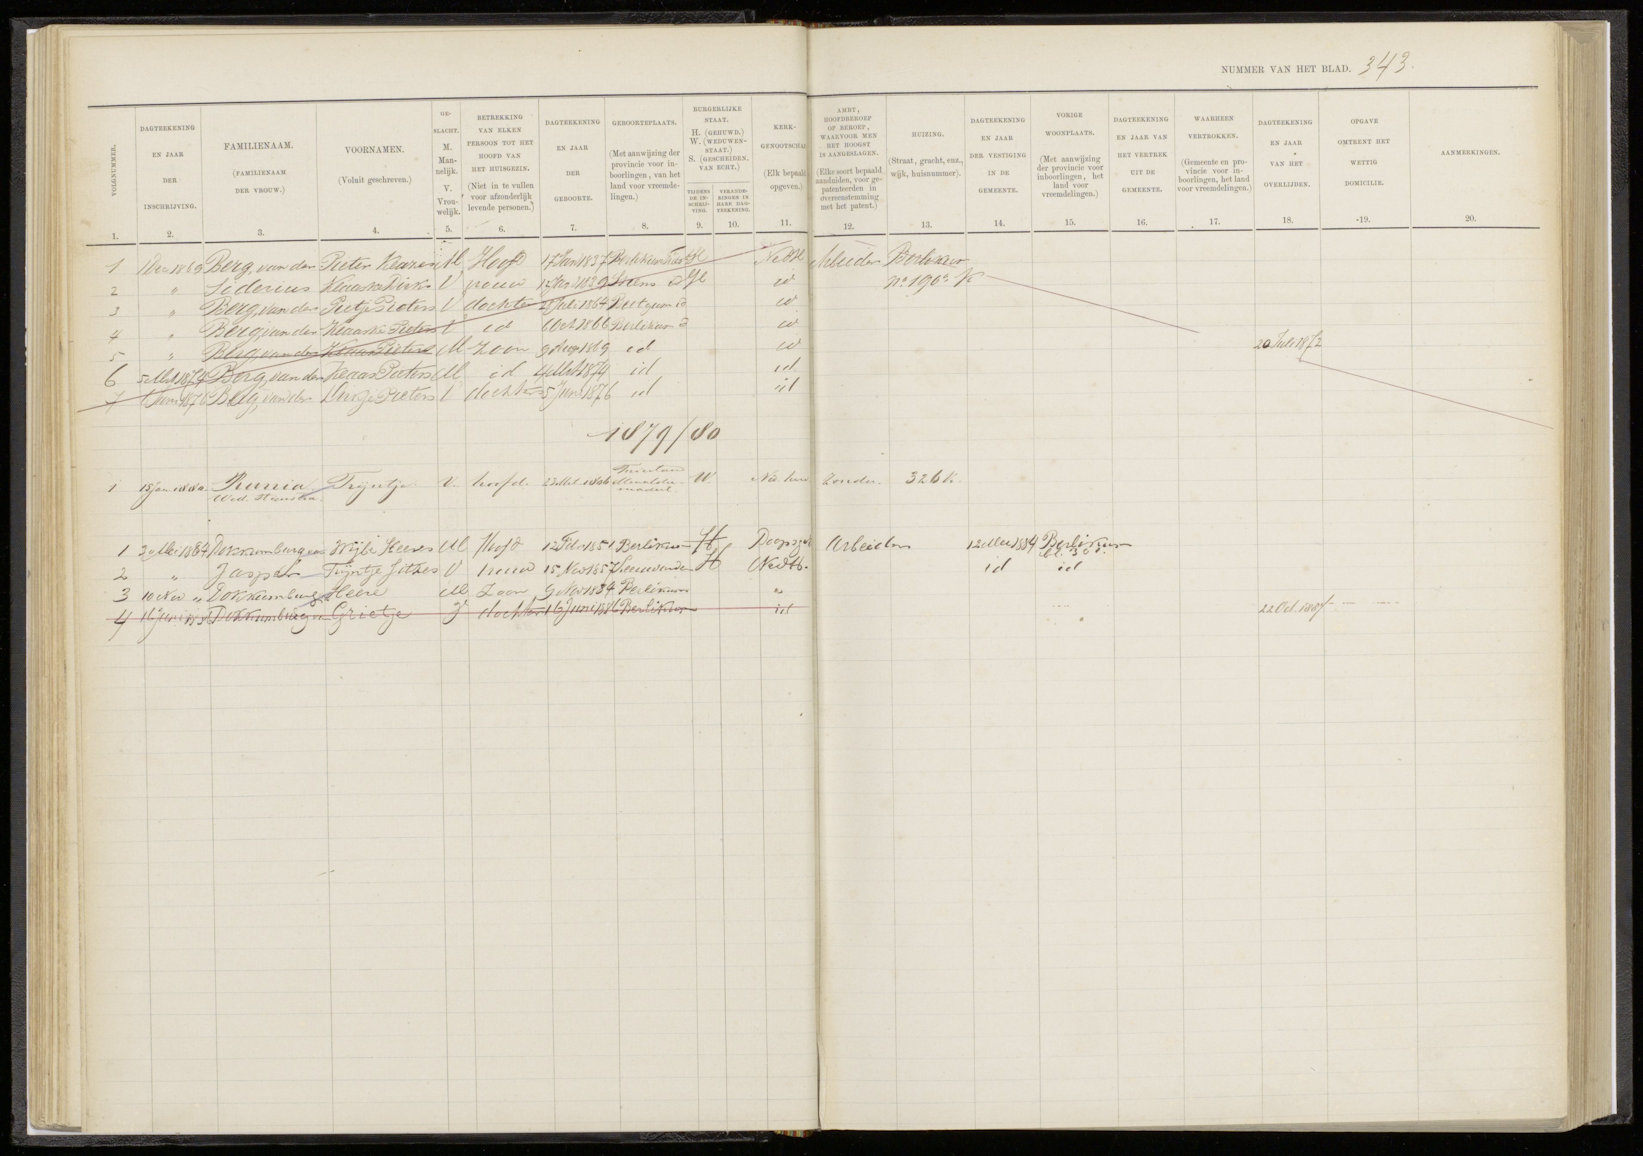 NUMMER VAN HET BLAD. 343.
VOLGNUMMER. 1.
DAGTEEKENING EN JAAR DER INSCHRIJVING. 2.
FAMILIENAAM. (FAMILIENAAM DER VROUW.) 3.
VOORNAMEN. (Voluit geschreven.) 4.
GESLACHT. M. Mannelijk. V. Vrouwelijk. 5.
BETREKKING VAN ELKEN PERSOON TOT HET HOOFD VAN HET HUISGEZIN. (Niet in te vullen voor afzonderlijk levende personen.) 6.
DAGTEEKENING EN JAAR DER GEBOORTE. 7.
GEBOORTEPLAATS. (Met aanwijzing der provincie voor inboorlingen, van het land voor vreemdelingen.) 8.
BURGERLIJKE STAAT. H. (GEHUWD.) W. (WEDUWENSTAAT.) S. (GESCHEIDEN VAN ECHT.)
TIJDENS DE INSCHRIJVING. 9.
VERANDERINGEN IN HARE DAGTEEKENING. 10.
KERKGENOOTSCHAP (Elk bepaald opgeven.) 11.
AMBT, HOOFDBEROEP OF BEROEP, WAARVOOR MEN HET HOOGST IS AANGESLAGEN. (Elke soort bepaald aanduiden, voor gepatenteerden in overeenstemming met het patent.) 12.
HUIZING. (Straat, gracht, enz., wijk, huisnummer). 13.
DAGTEEKENING EN JAAR DER VESTIGING IN DE GEMEENTE. 14.
VORIGE WOONPLAATS. (Met aanwijzing der provincie voor inboorlingen, het land voor vreemdelingen.) 15.
DAGTEEKENING EN JAAR VAN HET VERTREK UIT DE GEMEENTE. 16.
WAARHEEN VERTROKKEN. (Gemeente en provincie voor inboorlingen, het land voor vreemdelingen.) 17.
DAGTEEKENING EN JAAR VAN HET OVERLIJDEN. 18.
OPGAVE OMTRENT HET WETTIG DOMICILIE. 19.
AANMERKINGEN. 20.
1 1 Dec 1869 Berg, van der Pieter Klazes M Hoofd 17 Jan 1837 Berlikum H Ned H Arbeider Berlikum
2 " Siderius Klaaske Dirks V vrouw 1839 id H id No 190
3 " Berg, van der Pietje Pieters V dochter 28 Juli 1864 Beetgum id id
4 " Berg, van der Klaaske Pieters V id 6 Oct 1866 Berlikum id
5 " Berg, van der Klaas Pieters M Zoon 9 Aug 1869 id id 20 Juli 1872
6 5 Mrt 1874 Berg, van der Klaas Pieters M id 4 Mrt 1874 id id
7 6 Juni 1876 Berg, van der Pieters V dochter 5 Juni 1876 id id
1879/80
1 15 Jan 1880 Runia Trijntje V. hoofd. 1806 Friesland W. Ned. herv Zonder. 326
Wed.
1 20 Mei 1884 Dokkumburg Wijbe Heeres M Hoofd 12 Feb 1851 Berlikum H Doopsgez Arbeider 12 Mei 1884 Berlikum
2 " Jasper Trijntje Jitses V vrouw 15 Nov 1857 Leeuwarden H Ned H. id id
3 10 Nov " Dokkumburg Heere M Zoon 9 Nov 1884 Berlikum "
4 16 Juni Dokkumburg Grietje V dochter 16 Juni 1886 Berlikum id 22 Oct. 1887